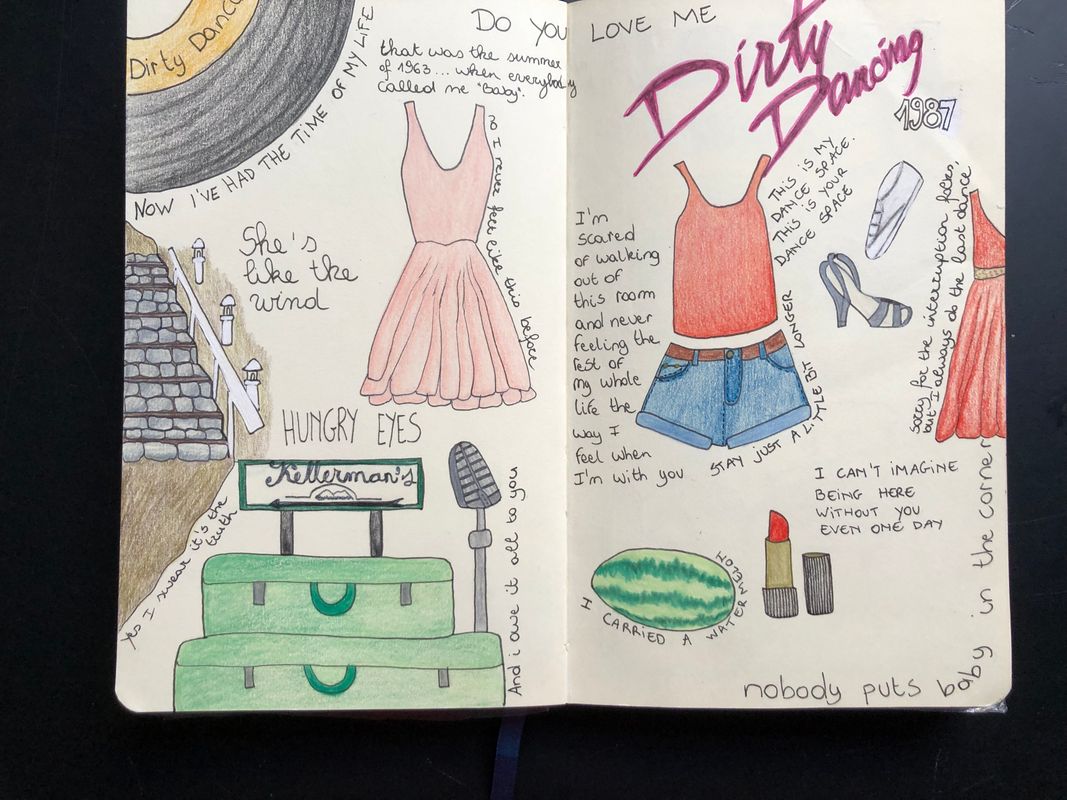 Dirty Danc
NOW I'VE HAD THE TIME OF MY LIFE
DO YOU LOVE ME
that was the summer
of 1963... when everybody
called me "Baby".
I never felt like this before
She's
like the
wind
HUNGRY EYES
Kellerman's
Yes I swear it's the
truth
And i owe it all to you
Dirty
Dancing
1987
THIS IS MY
DANCE SPACE.
THIS IS YOUR
DANCE SPACE
I'm
scared
of walking
out of
this room
and never
feeling the
rest of
my whole
life the
way I
feel when
I'm with you
STAY JUST A LITTLE BIT LONGER
Sorry for the interruption folks,
but I always do the last dance
I CAN'T IMAGINE
BEING HERE
WITHOUT YOU
EVEN ONE DAY
I CARRIED A WATERMELON
nobody puts baby in the corner